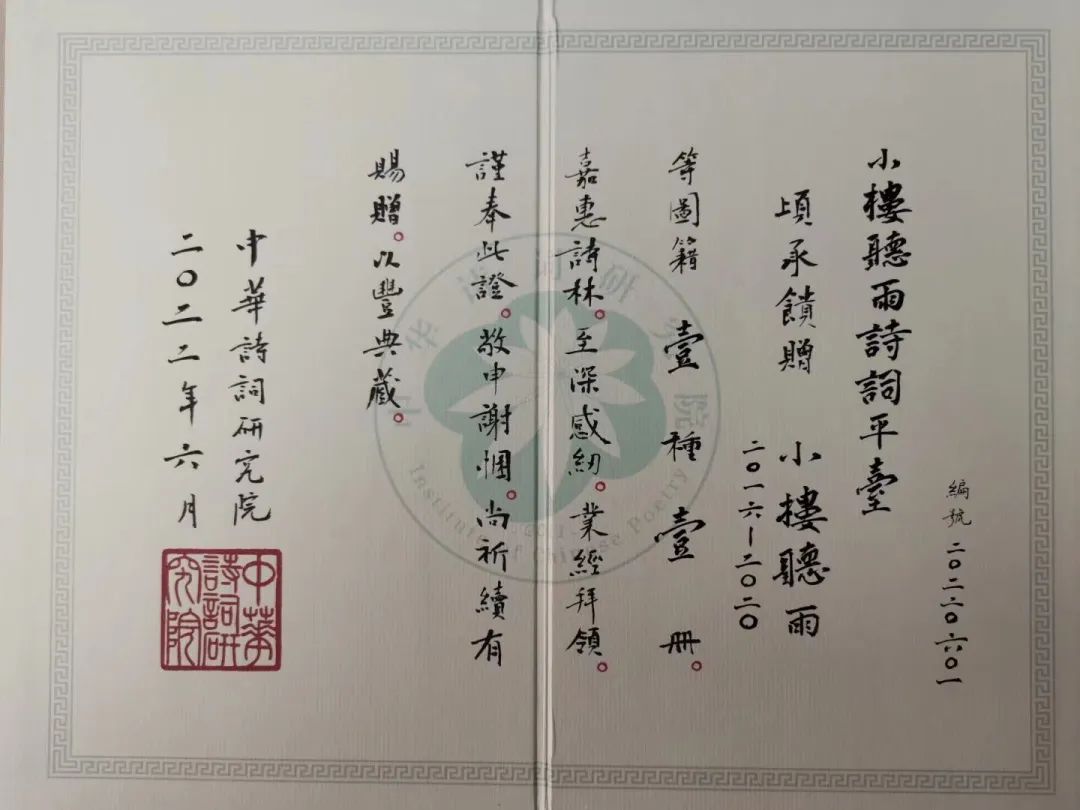 編號 二〇二二〇六〇一
小樓聽雨詩詞平臺
頃承饋贈 小樓聽雨
二〇一六—二〇二〇
等圖籍 壹 種 壹 冊。
嘉惠詩林。至深感紉。業經拜領。
謹奉此證。敬申謝悃。尚祈續有
賜贈。以豐典藏。
中華詩詞研究院
二〇二二年六月
中華
詩詞研
究院
中华诗词研究院
Institute of Chinese Poetry